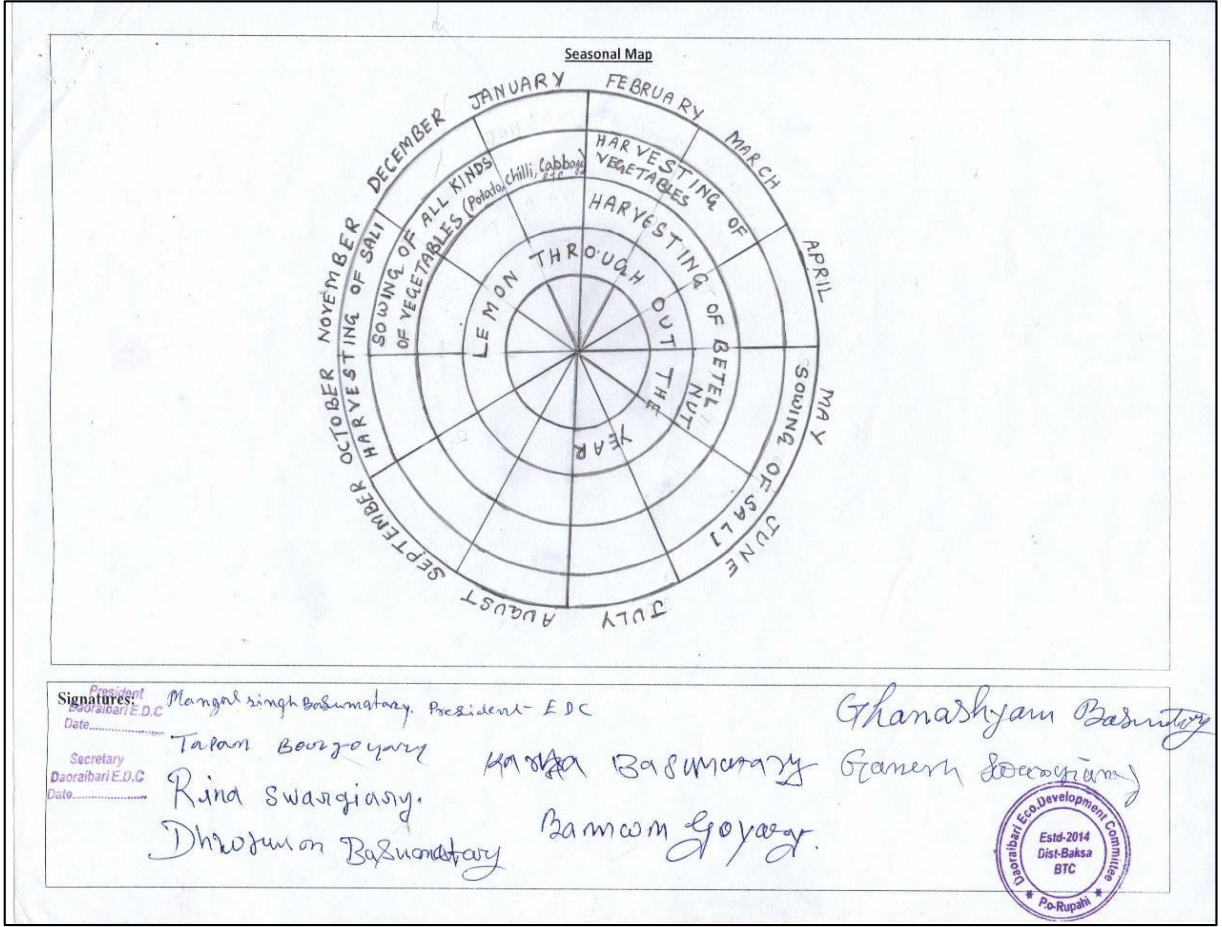 Seasonal Map
JANUARY
FEBRUARY
MARCH
APRIL
MAY
JUNE
JULY
AUGUST
SEPTEMBER
OCTOBER
NOVEMBER
DECEMBER
HARVESTING OF SALI
SOWING OF SALI
SOWING OF ALL KINDS
OF VEGETABLES (Potato, Chilli, Cabbage
etc
HARVESTING OF
VEGETABLES
HARVESTING OF BETEL
NUT
LEMON THROUGH OUT THE
YEAR
Signatures:
President
Daoraibari E.D.C
Date
Secretary
Daoraibari E.D.C
Date
Mangal singh Basumatary. President - EDC
Rina Swargiary.
Basumatary
Ghanashyam
Ganesh
Goyary.
Daoraibari Eco. Development Committee
Estd-2014
Dist-Baksa
BTC
P.o-Rupahi